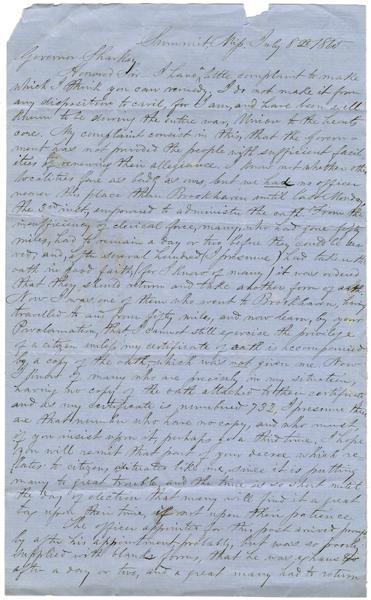 Summit, Miss, July 8th 1865
Governor Sharkey,
Honored Sir. I have a little complaint to make
which I think you can remedy, I do not make it from
any disposition to cavil, for I am, and have been well
known to be during the entire war, Union to the heart's
core. My complaint consist in this, that the Govern
ment has not provided the people with sufficient facil
ities for renewing their allegiance. I know not whether other
localities fare as bad, as ours, but we had no officer
nearer this place than Brookhaven until last Monday
the 3rd inst, empowered to administer the oath. From the
insufficiency of clerical force, many, who had gone fifty
miles, had to remain a day or two, before they could be
and, after several hundred (I presume) had taken the
oath in good faith, (for I know of many) it was ordered
that they should return and take another form of oath
Now I was one of them who went to Brookhaven, having
travelled to and from fifty miles, and now learn, by your
Proclamation, that I cannot still exercise the privilege
of a citizen unless my certificate of oath is accompanied
by a copy of the oath, which was not given me. Now
I know many who are precisely in my situation,
having no copy of the oath attached to their certificate
and as my certificate is numbered 732, I presume there
are that number who have no copy, and who must
if you insist upon it, perhaps go a third time. I hope
you will remit that part of your decree which re
lates to citizens, situated like me, since it is putting
many to great trouble, and the time is so short until
the day of election that many will find it a great
tax upon their time, if not upon their patience.
The officer appointed for this post arrived
by after his appointment probably, but was so poorly
supplied with blank forms, that he was exhausted
after a day or two, and a great many had to return